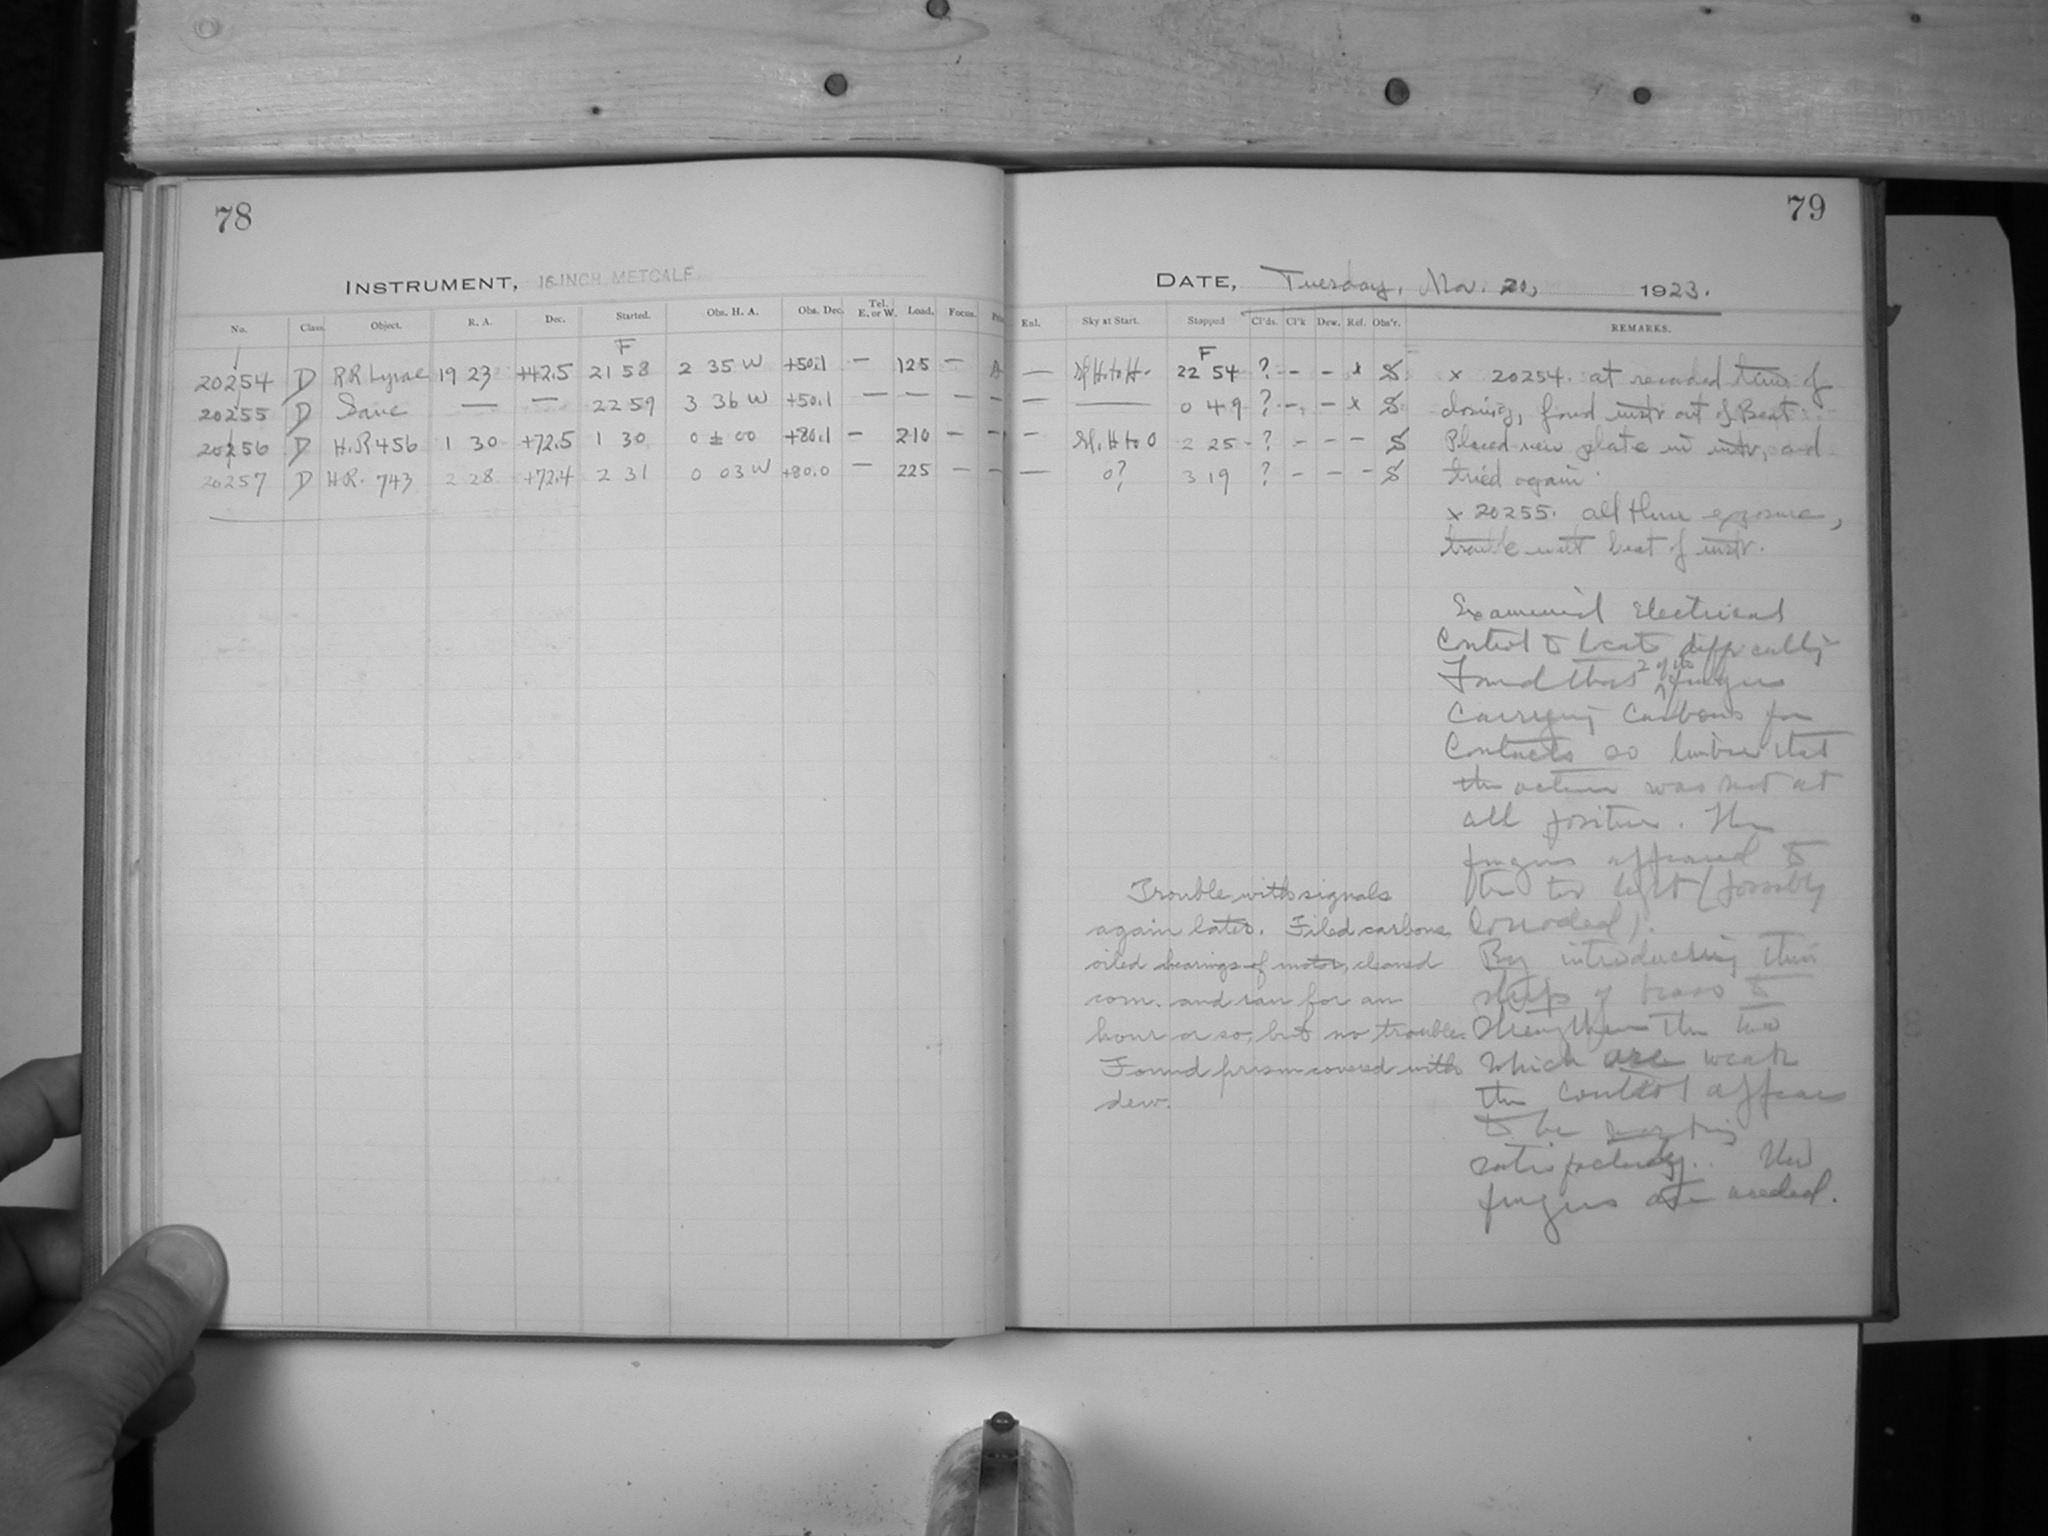 78
INSTRUMENT, 16-INCH METCALF
No. Class. Object. R. A. Dec. Started. Obs. H. A. Obs. Dec. Tel. E. or W. Load. Focus.
F
20254 D RR Lyrae 19 23 +42.5 21 58 2 35 W +50.1 — 125 —
20255 D Same — — 22 59 3 36 W +50.1 — — — —
20256 D H.R 456 1 30 +72.5 1 30 0 ± 00 +80.1 — 210 — —
20257 D H.R. 743 2 28 +72.4 2 31 0 03 W +80.0 — 225 — —
79
DATE, Tuesday, Nov. 20, 1923.
Enl. Sky at Start. Stopped Cl'ds. Cl'k Dew. Ref. Obs'r. REMARKS.
F
— Sl. H. to H. 22 54 ? - - x S
— — 0 49 ? - - x S
— Sl. H to 0 2 25 - ? - - - S
— 0? 3 19 ? - - - S
x 20254. at recorded time of
closing, found instr out of Beat.
Placed new plate in instr, and
tried again.
x 20255. all thru exposure,
trouble with beat of instr.
Examined Electrical
Control to locate difficulty
Found that 2 of the fingers
Carrying Carbons for
Contacts so limber that
the action was not at
all positive. The
fingers appeared to
be too light (possibly
Corroded).
By introducing thin
strips of brass to
strengthen the two
which are weak
the control appears
to be working
satisfactorily. New
fingers are needed.
Trouble with signals
again later. Filed carbons,
oiled bearings of motor, cleaned
com. and ran for an
hour or so, but no trouble.
Found prism covered with
dew.